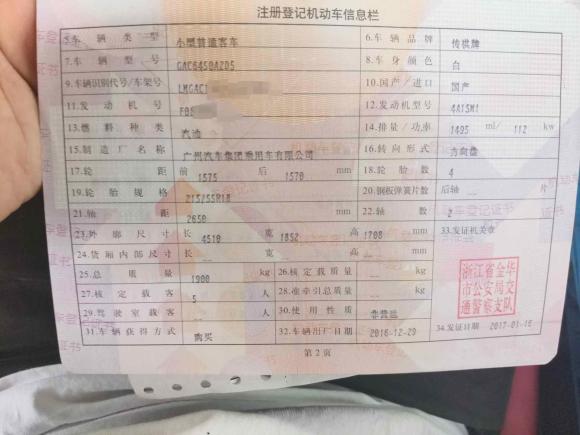 注册登记机动车信息栏
5.车辆类型 小型普通客车 6.车辆品牌 传祺牌
7.车辆型号 GAC6450A2D5 8.车身颜色 白
9.车辆识别代号/车架号 LMGAC1 10.国产/进口 国产
11.发动机号 12.发动机型号 4A15M1
13.燃料种类 汽油 14.排量/功率 1495 ml/ 112 kw
15.制造厂名称 广州汽车集团乘用车有限公司 16.转向形式 方向盘
17.轮距 前 1575 后 1570 mm 18.轮胎数 4
19.轮胎规格 215/55R18 20.钢板弹簧片数 后轴 -- 片
21.轴距 2650 mm 22.轴数 2
23.外廓尺寸 长 4510 宽 1852 高 1708 mm 33.发证机关章
24.货厢内部尺寸 长 -- 宽 -- 高 -- mm
25.总质量 1900 kg 26.核定载质量 -- kg
27.核定载客 5 人 28.准牵引总质量 -- kg
29.驾驶室载客 -- 人 30.使用性质 非营运
31.车辆获得方式 购买 32.车辆出厂日期 2016-12-29 34.发证日期 2017-01-16
浙江省金华
市公安局交
通警察支队
第2页